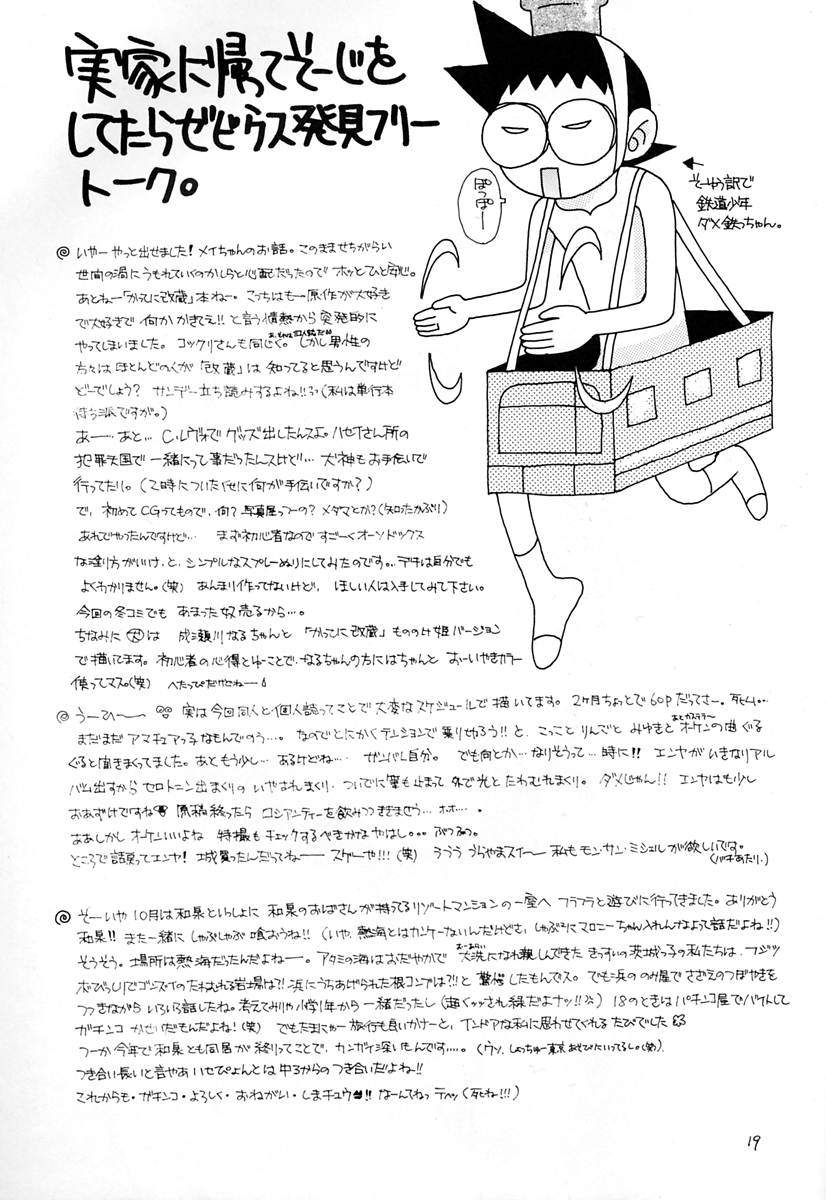 実家に帰ってそーじを
してたらゼビウス発見フリー
トーク。
ぽっぽー
←
そーゆう訳で
鉄道少年
ダメ鉄っちゃん。
いやーやっと出せました!メイちゃんのお話。このまませちがらい
世間の渦にうもれていくのかしらと心配だったのでホッとひと安心。
あとねー「かってに改蔵」本ねー。こっちはもー原作が大好き
で大好きで何かかきてえ!!と言う情熱から突発的に
やってしまいました。コックリさんも同じく。しかし男性の
方々はほとんどのくが「改蔵」は知ってると思うんですけど
どーでしょう?サンデー立ち読みするよね!!(私は単行本
待ち派ですが。)
あー…あと…C.レヴォでグッズ出したんスよ。ハセイさん所の
犯罪天国で一緒にって事だったんスけど…犬神もお手伝いで
行ってたり。(2時についたくせに何が手伝いですか?)
で、初めてCGってもので、何?写真屋っつーの?メタマとか?(知ったかぶり)
あれでやったんですけど… まず初心者なのですごーくオーソドックス
な塗り方がいいけ、と、シンプルなスプレーぬりにしてみたのです。デキは自分でも
よくわかりません。(笑) あんまり作ってないけど、ほしい人は入手してみて下さい。
今回の冬コミでも あまった奴売るから…。
ちなみに 犬は 成瀬川なるちゃんと「かってに改蔵」もののけ姫バージョン
で描いてます。初心者の心得とゆーことで、なるちゃんの方にはちゃんと おーいやきカラー
使ってマス。(笑) へたっぴだけどねー
うーひ〜 実は今回同人と個人誌ってことで大変なスケジュールで描いてます。2ヶ月ちょっとで60Pだってさー。死ム…
まだまだ アマチュアっ子なもんでのう…。なのでとにかくテンションで乗り切ろう!!と、こっことりんごと みゆきとオーケンの曲ぐる
ぐると聞きまくってました。あともう少し…あるけどね… ガンバレ自分。 でも何とか…なりそうって…時に!!エンヤがいきなりアル
バム出すからセロトニン出まくりのいやされまくり、ついでに筆も止まって外で光とたわむれまくり。ダメじゃん!!エンヤはも少し
おあずけですね 原稿終ったら コシアンティーを飲みつつききませう…ホホ….
ああしかしオーケンいいよね 特撮もチェックするべきかなやはし。。。ぶつぶつ。
ところで話戻ってエンヤ!城買ったんだってねー スゲーや!!!(笑) ううう うらやまスィ〜私もモン・サン・ミシェルが欲しいです。
(バチあたり.)
そーいや10月は和泉といっしょに和泉のおばさんが持ってるリゾートマンションの一室へ フラフラと遊びに行ってきました。ありがとう
和泉!!また一緒にしゃぶしゃぶ喰おうね!! (いや、熱海とはカンケーないんだけどさ、しゃぶしゃぶにマロニーちゃん入れんなよって話だよね!!)
そうそう。場所は熱海だったんだよねー。アタミの海はおだやかで大洗になれ親しんできたきっすいの茨城っ子の私たちは、フジツ
ボびっしりでゴンズイのたわむれる岩場は?!浜にうちあげられた根コンブは?!と驚愕したもんでス。でも浜ののみ屋でさざえのつぼやきを
つつきながら いろいろ話したね。考えてみりゃ小学1年から一緒だったし(歯くッされ縁だよナッ!!) 18のときはパチンコ屋でバイトして
ガチンコ かせいだもんだよね!(笑) でもたまにゃー旅行も良いかけーと、インドアな私に思わせてくれる たびでした
つーか今年で和泉とも同居が終りってことで、カンガイ深いもんです…。(ウソ、しょっちゅー東京あそびにいってるし。(笑)
つき合い長いと言やあいせぴょんとは中3からのつき合いだよね!!
これからも・ガチンコ・よろしく・おねがい・しまチュウ!! なーんてねっ テヘッ(死ね!!!)
19